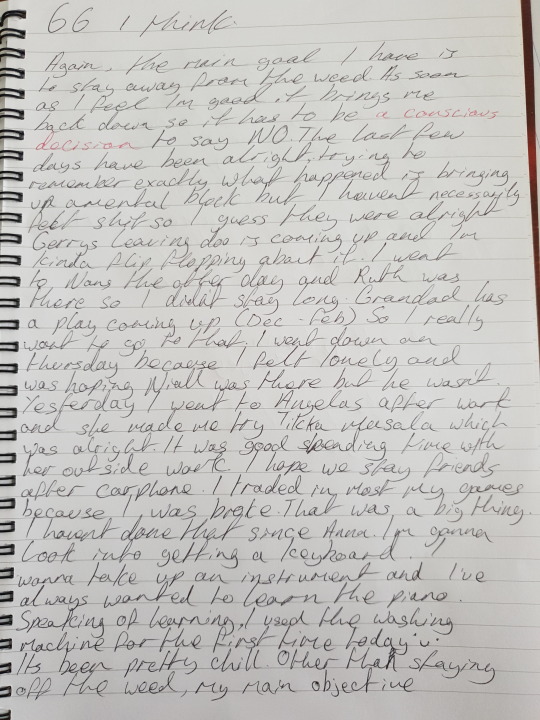 66 I think.
Again, the main goal I have is
to stay away from the weed. As soon
as I feel I'm good it brings me
back down so it has to be a conscious
decision to say NO. The last few
days have been alright, trying to
remember exactly what happened is bringing
up a mental block but I havent necessarily
felt shit so I guess they were alright
Gerrys leaving doo is coming up and I'm
kinda flip flopping about it. I went
to Nans the other day and Ruth was
there so I didn't stay long. Grandad has
a play coming up (Dec - Feb) So I really
want to go to that. I went down on
thursday because I felt lonely and
was hoping Niall was there but he wasn't.
Yesterday I went to Angelas after work
and she made me try Ticka Masala which
was alright. It was good spending time with
her outside work. I hope we stay friends
after carphone. I traded in most my games
because I was broke. That was a big thing.
I havent done that since Anna. I'm gonna
look into getting a keyboard. I
wanna take up an instrument and I've
always wanted to learn the piano.
Speaking of learning, I used the washing
machine for the first time today :).
Its been pretty chill. Other than staying
off the weed, my main objective